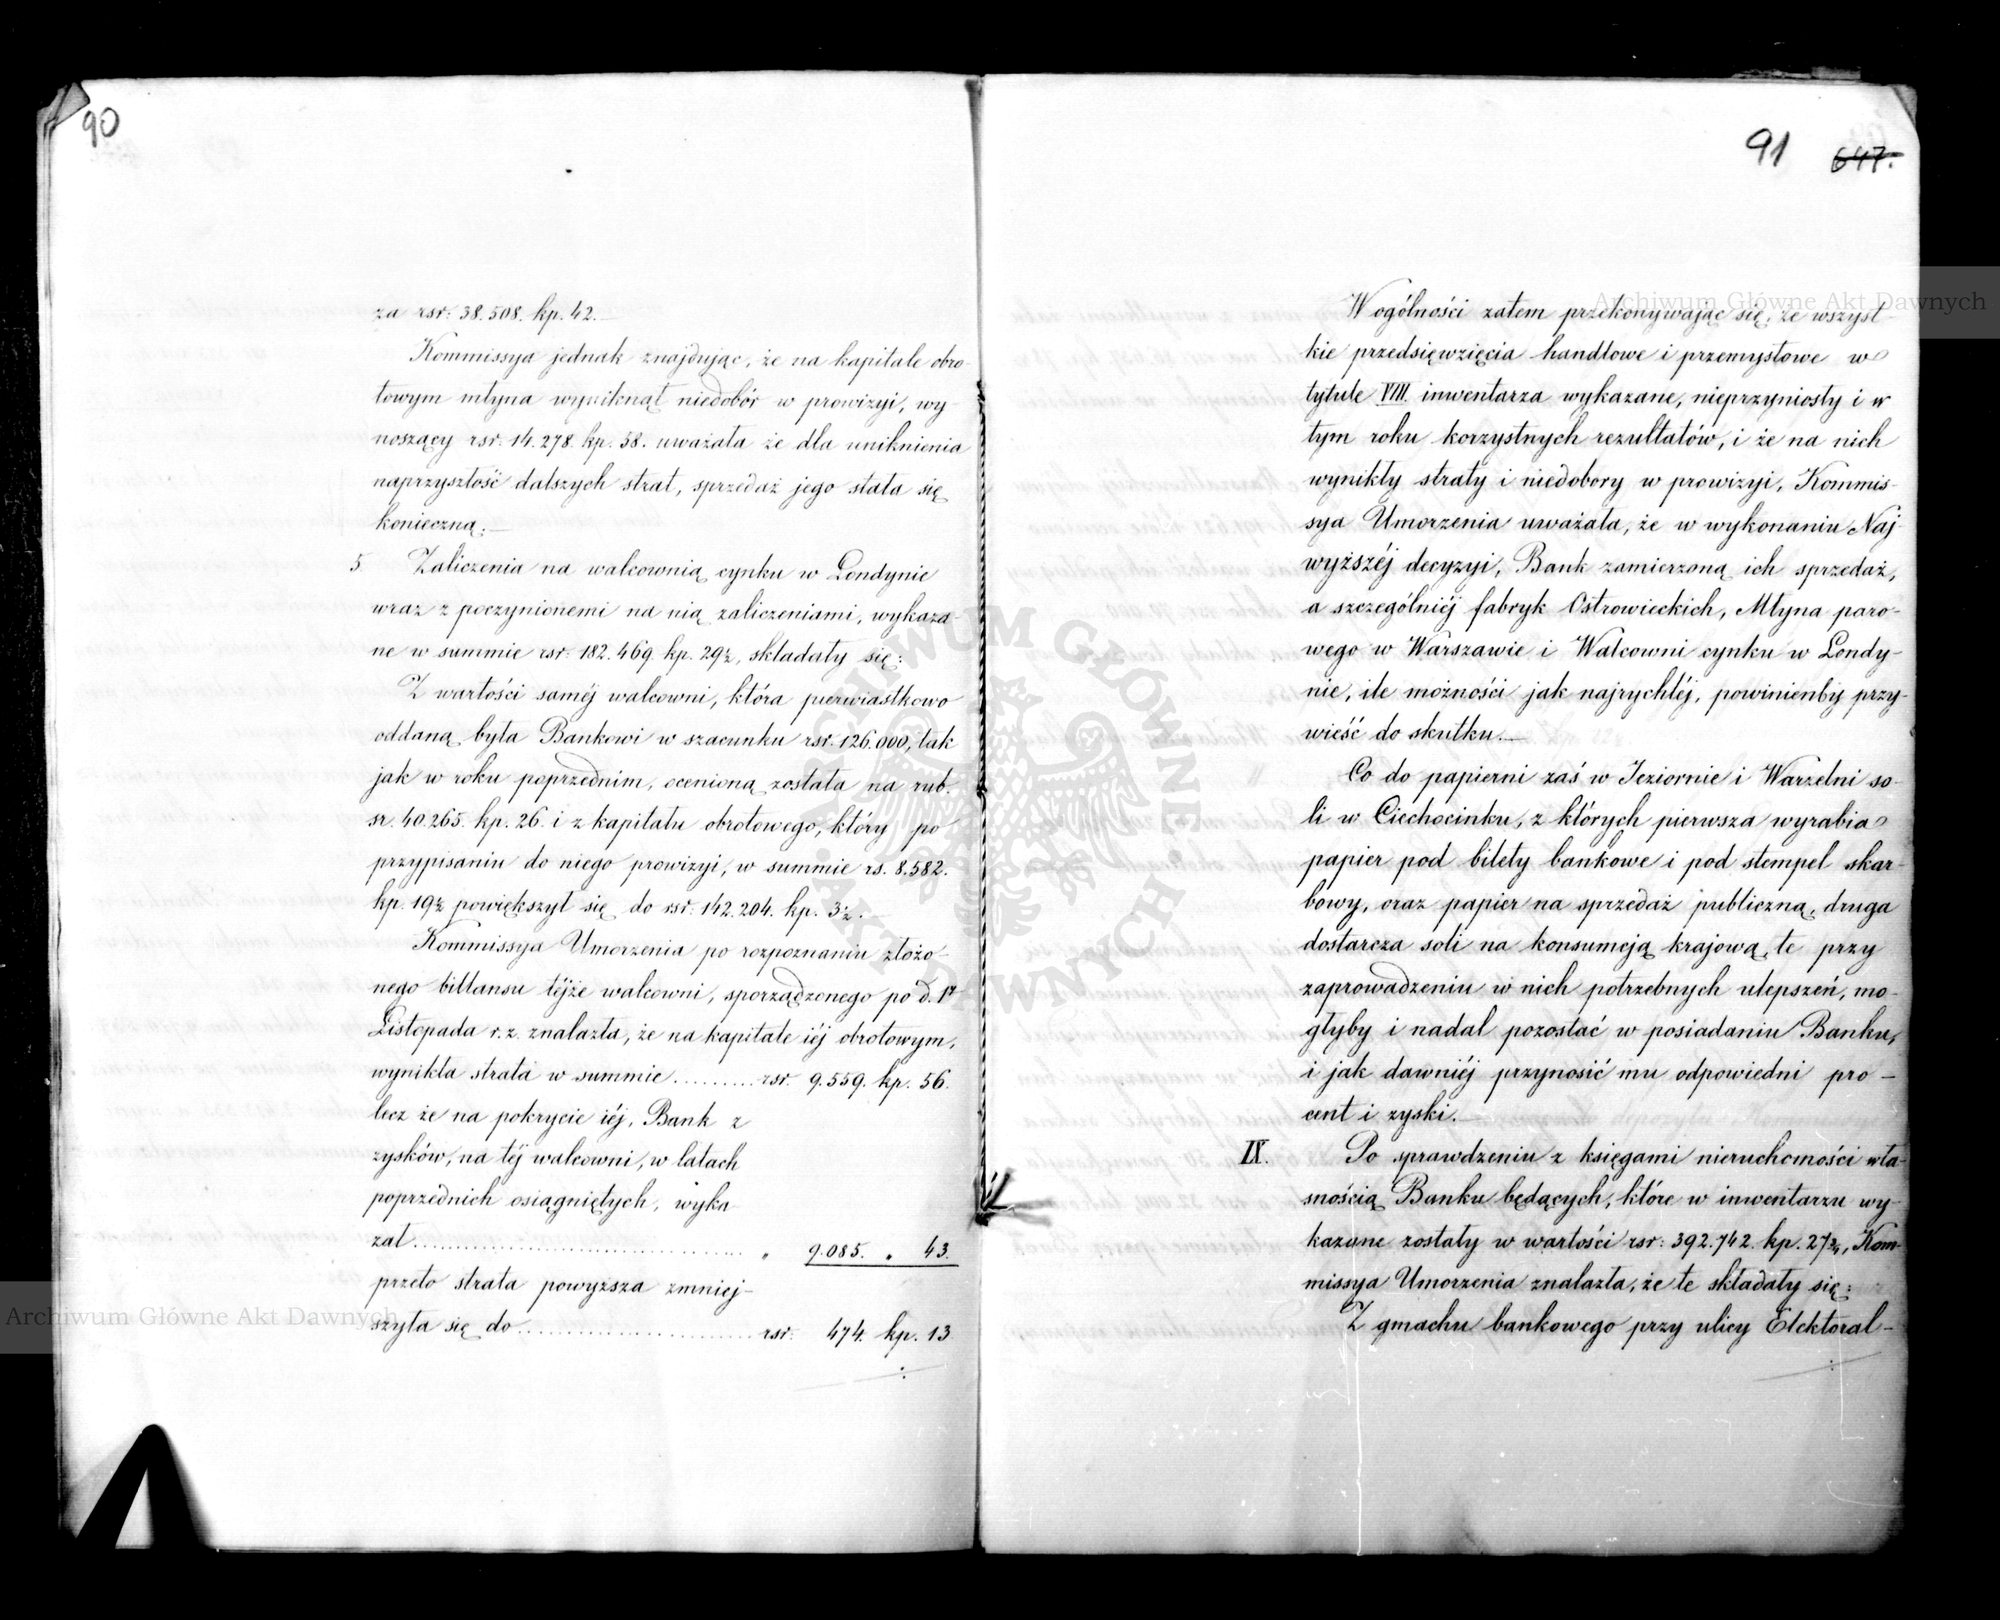 90
za rsr: 38.508. kp. 42.—
Kommissya jednak znajdując, że na kapitale obro-
towym młyna wyniknął niedobór w prowizyi, wy-
noszący rsr. 14.278. kp. 58. uważała że dla uniknienia
naprzyszłość dalszych strat, sprzedaż jego stała się
konieczną.—
5. Zaliczenia na walcownią cynku w Londynie
wraz z poczynionemi na nią zaliczeniami, wykaza-
ne w summie rsr: 182.469. kp. 29½, składały się:
Z wartości saméj walcowni, która pierwiastkowo
oddaną była Bankowi w szacunku rsr. 126.000, tak
jak w roku poprzednim, ocenioną została na rub.
sr. 40.265. kp. 26. i z kapitału obrotowego, który po
przypisaniu do niego prowizyi, w summie rs. 8.582.
kp. 19½ powiększył się do rsr: 142.204. kp. 3½.—
Kommissya Umorzenia po rozpoznaniu złożo-
nego billansu téjże walcowni, sporządzonego po d. 17
Listopada r.z. znalazła, że na kapitale iéj obrotowym,
wynikła strata w summie.........rsr. 9.559. kp. 56.
lecz że na pokrycie iéj, Bank z
zysków, na téj walcowni, w latach
poprzednich osiągniętych, wyka-
zał.................................... „ 9.085. „ 43.
przeto strata powyższa zmniej-
szyła się do.......................... rsr: 474. kp. 13
91 647.
W ogólności zatem przekonywając się, że wszyst-
kie przedsięwzięcia handlowe i przemysłowe w
tytule VIII. inwentarza wykazane, nieprzyniosły i w
tym roku korzystnych rezultatów, i że na nich
wynikły straty i niedobory w prowizyi, Kommis-
sya Umorzenia uważała, że w wykonaniu Naj-
wyższéj decyzyi, Bank zamierzoną ich sprzedaż,
a szczególniéj fabryk Ostrowieckich, Młyna paro-
wego w Warszawie i Walcowni cynku w Londy-
nie, ile możności jak najrychléj, powinienby przy-
wieść do skutku.—
Co do papierni zaś w Jeziornie i Warzelni so-
li w Ciechocinku, z których pierwsza wyrabia
papier pod bilety bankowe i pod stempel skar-
bowy, oraz papier na sprzedaż publiczną, druga
dostarcza soli na konsumcją krajową, te przy
zaprowadzeniu w nich potrzebnych ulepszeń, mo-
głyby i nadal pozostać w posiadaniu Banku,
i jak dawniéj przynosić mu odpowiedni pro-
cent i zyski.—
IX. Po sprawdzeniu z księgami nieruchomości wła-
snością Banku będących, które w inwentarzu wy-
kazane zostały w wartości rsr: 392.742. kp. 27¾, Kom-
missya Umorzenia znalazła, że te składały się:
Z gmachu bankowego przy ulicy Elektoral-
Archiwum Główne Akt Dawnych
Archiwum Główne Akt Dawnych
ARCHIWUM GŁÓWNE AKT DAWNYCH